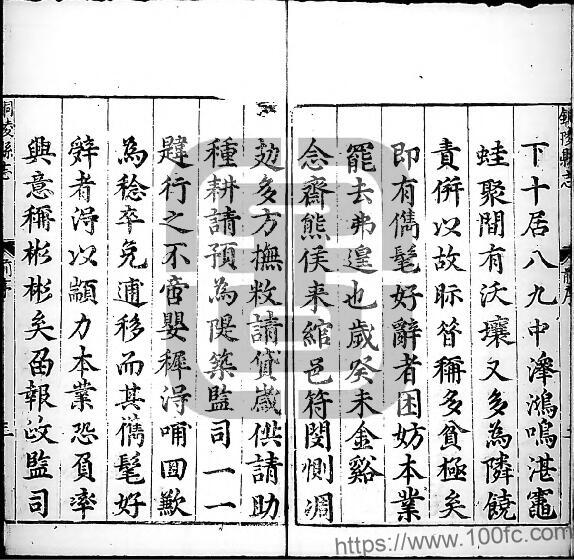 銅陵縣志
前序
二
下十居八九中澤鴻嗚湛竈
蛙聚間有沃壤又多為隣饒
責併以故眎昝稱多貧極矣
即有儁髦好辭者困妨本業
罷去弗遑也歲癸未金谿
念齋熊侯来綰邑符閔惻凋
攰多方撫敉請貸歲供請助
種耕請預為隄築監司一一
韙行之不啻嬰穉淂哺回歉
為稔卒免逋移而其儁髦好
辤者淂以顓力本業恐負率
興意稱彬彬矣畱報政監司
銅陵縣志
前序
三
https://www.100fc.com